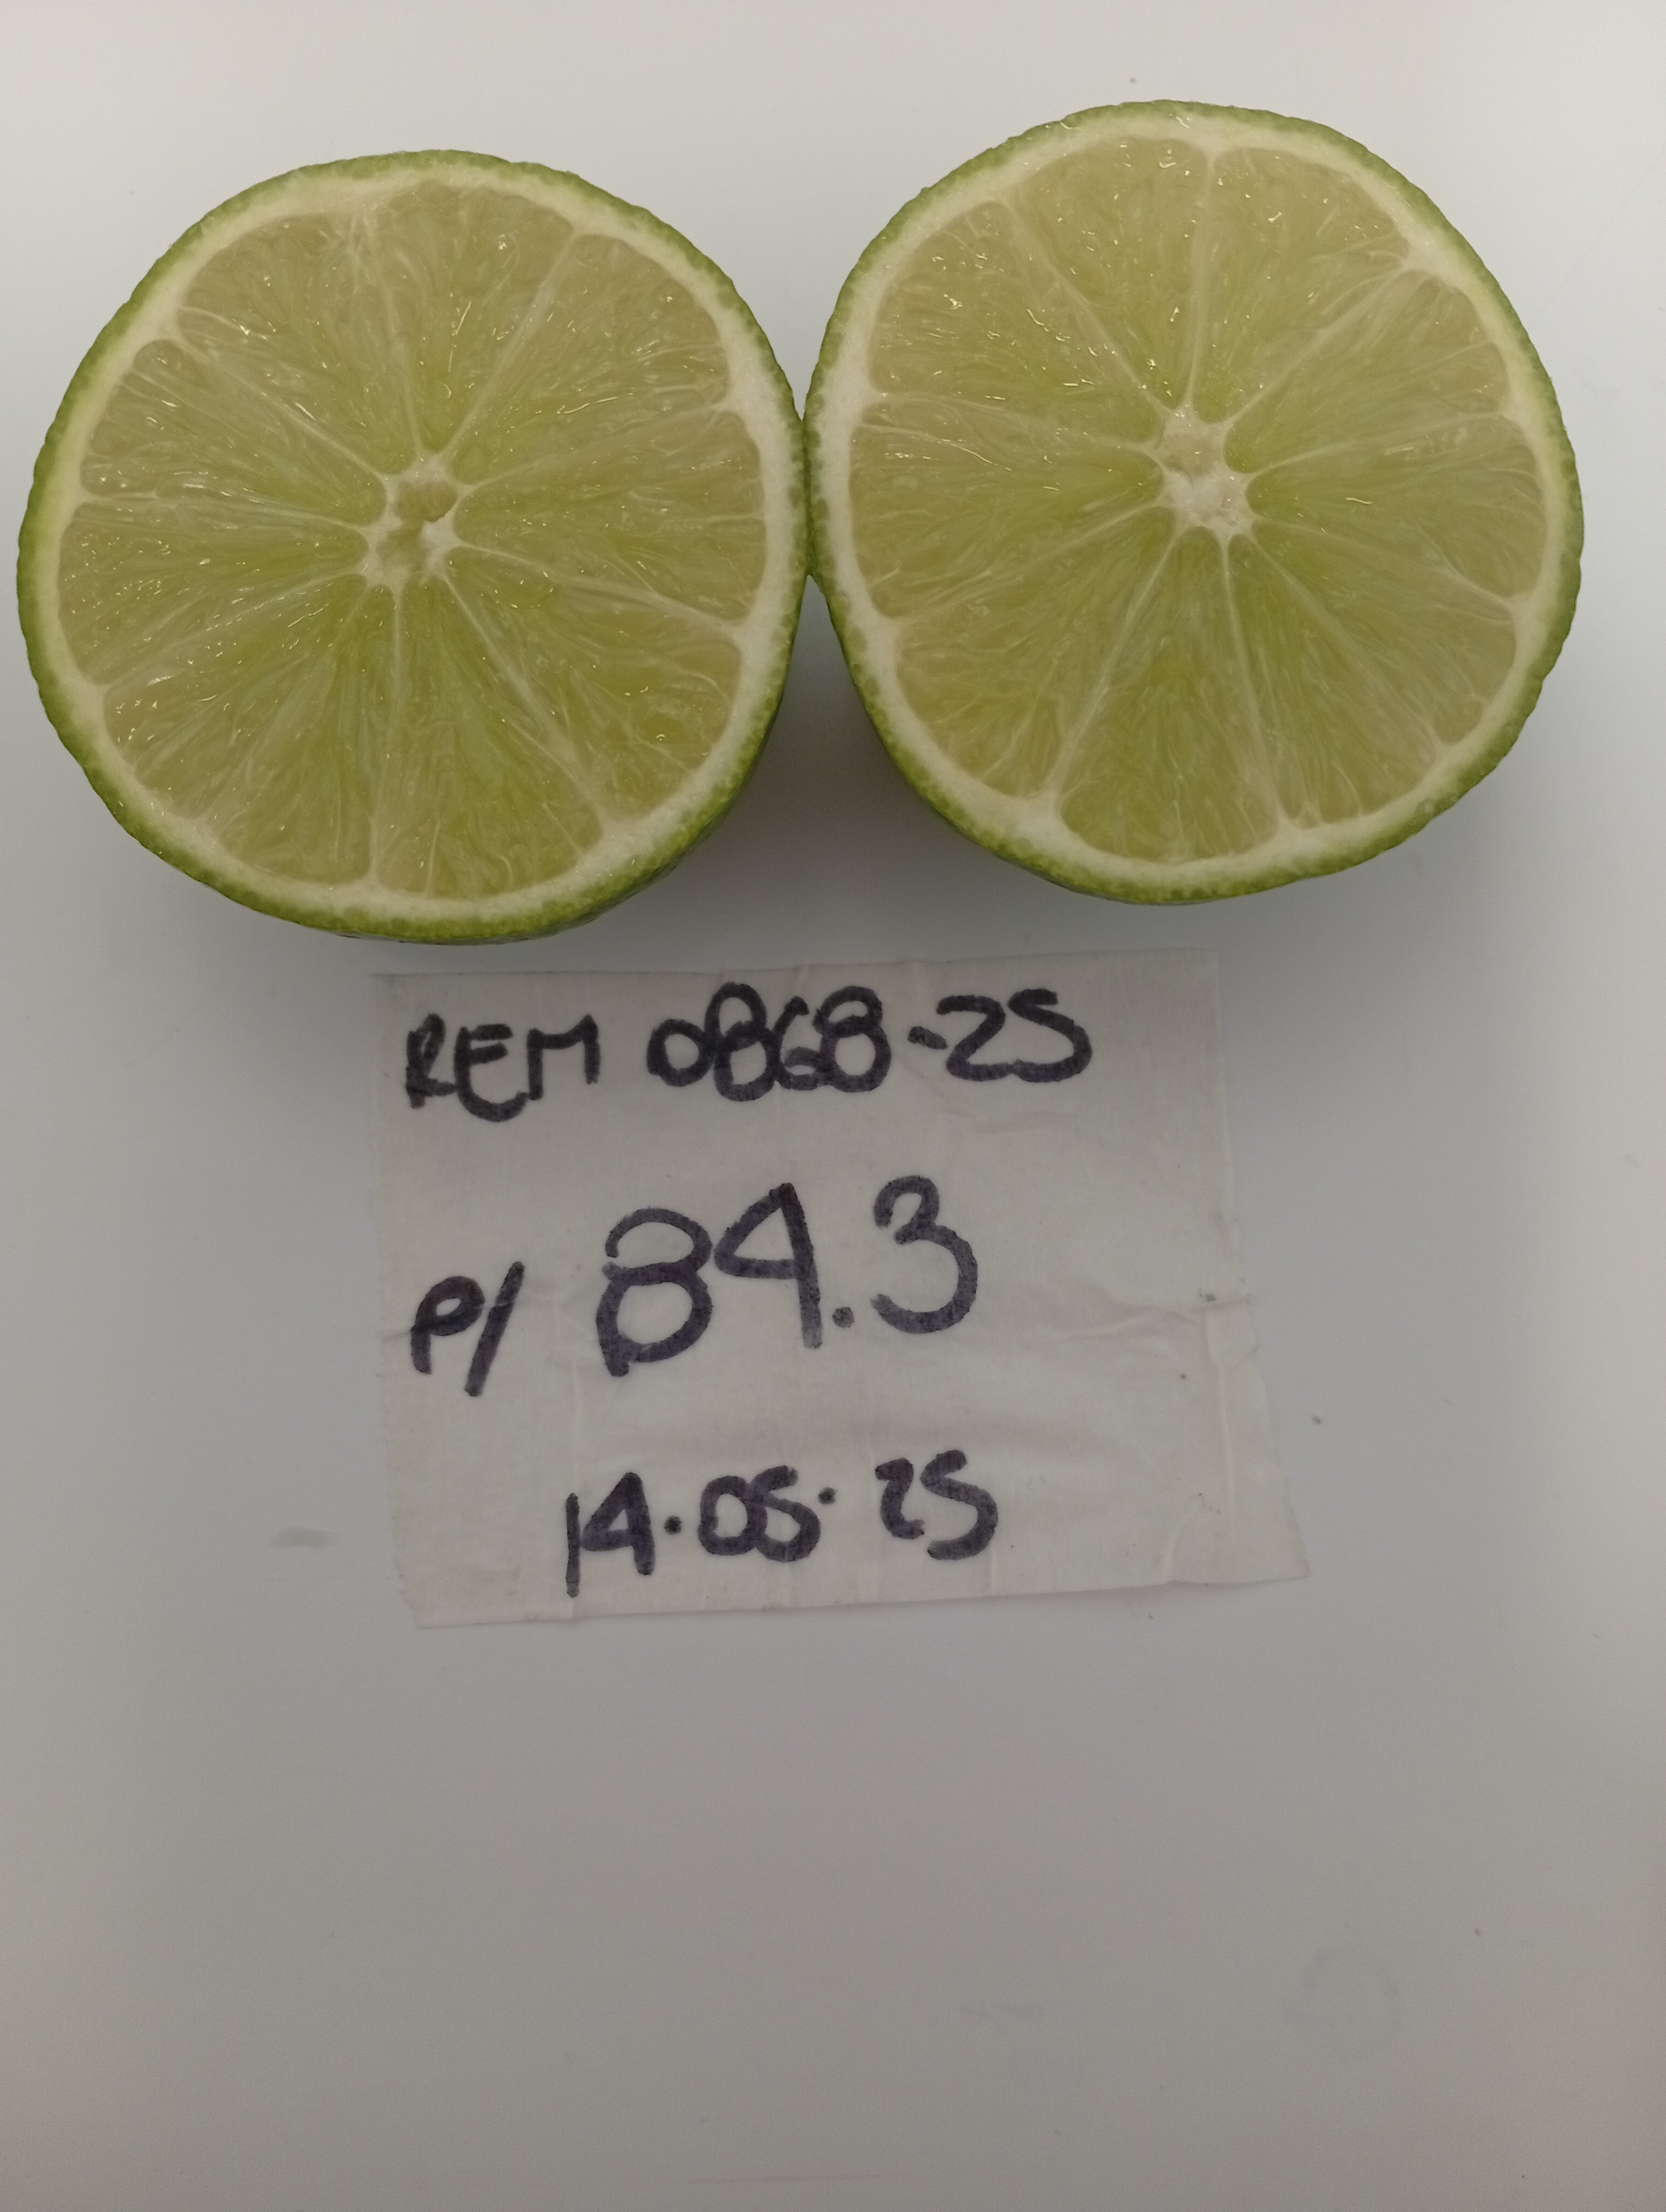 REM 0868-25
P/ 84.3
14.05.25